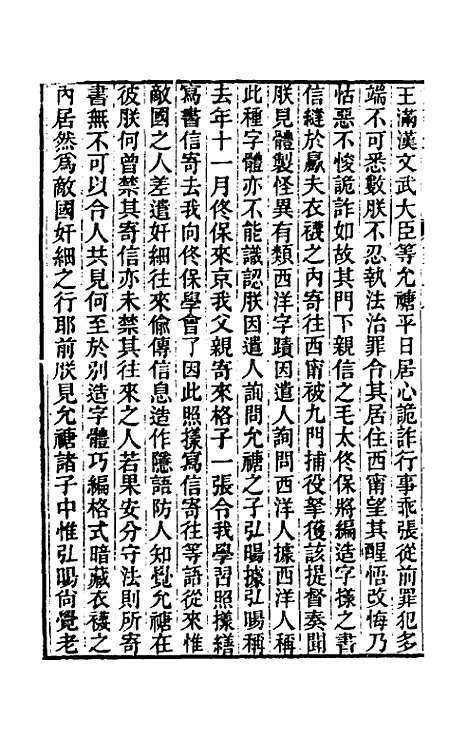 王滿漢文武大臣等允禟平日居心詭詐行事乖張從前罪犯多
端不可悉數朕不忍執法治罪令其居住西甯望其醒悟改悔乃
怙惡不悛詭詐如故其門下親信之毛太佟保將編造字㨾之書
信縫於羸夫衣襪之內寄往西甯被九門捕役拏獲該提督奏聞
朕見體製怪異有類西洋字蹟因遣人詢問西洋人據西洋人稱
此種字體亦不能識認朕因遣人詢問允禟之子弘暘據弘暘稱
去年十一月佟保來京我父親寄來格子一張令我學習照㨾繕
寫書信寄去我向佟保學會了因此照㨾寫信寄往等語從來惟
敵國之人差遣奸細往來偷傳信息造作隱語防人知覺允禟在
彼朕何曾禁其寄信亦未禁其往來之人若果安分守法則所寄
書無不可以令人共見何至於別造字體巧編格式暗藏衣襪之
內居然爲敵國奸細之行耶前朕見允禟諸子中惟弘暘尚覺老